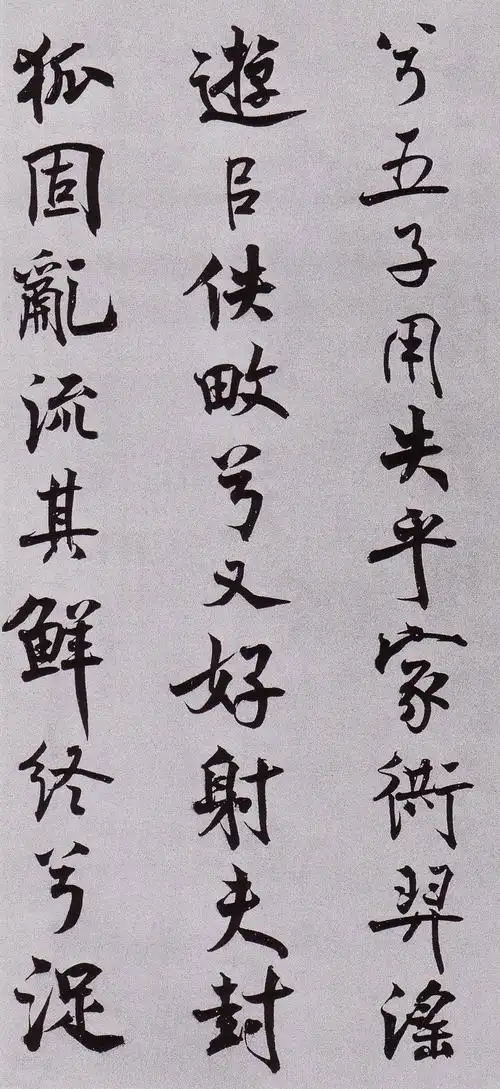 兮五子用失乎家衖羿滛
遊㠯佚畋兮又好射夫封
狐固亂流其鮮終兮浞